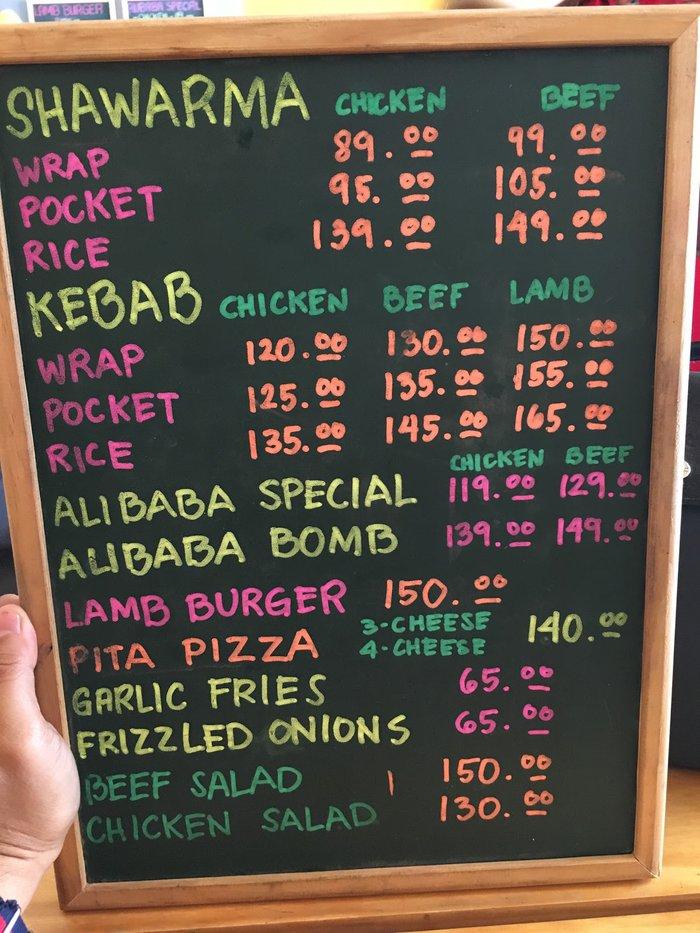 LAMB BURGER ALIBABA SPECIAL
SHAWARMA CHICKEN BEEF
WRAP 89.00 99.00
POCKET 95.00 105.00
RICE 139.00 149.00
KEBAB CHICKEN BEEF LAMB
WRAP 120.00 130.00 150.00
POCKET 125.00 135.00 155.00
RICE 135.00 145.00 165.00
CHICKEN BEEF
ALIBABA SPECIAL 119.00 129.00
ALIBABA BOMB 139.00 149.00
LAMB BURGER 150.00
PITA PIZZA 3-CHEESE 140.00
4-CHEESE
GARLIC FRIES 65.00
FRIZZLED ONIONS 65.00
BEEF SALAD 150.00
CHICKEN SALAD 130.00